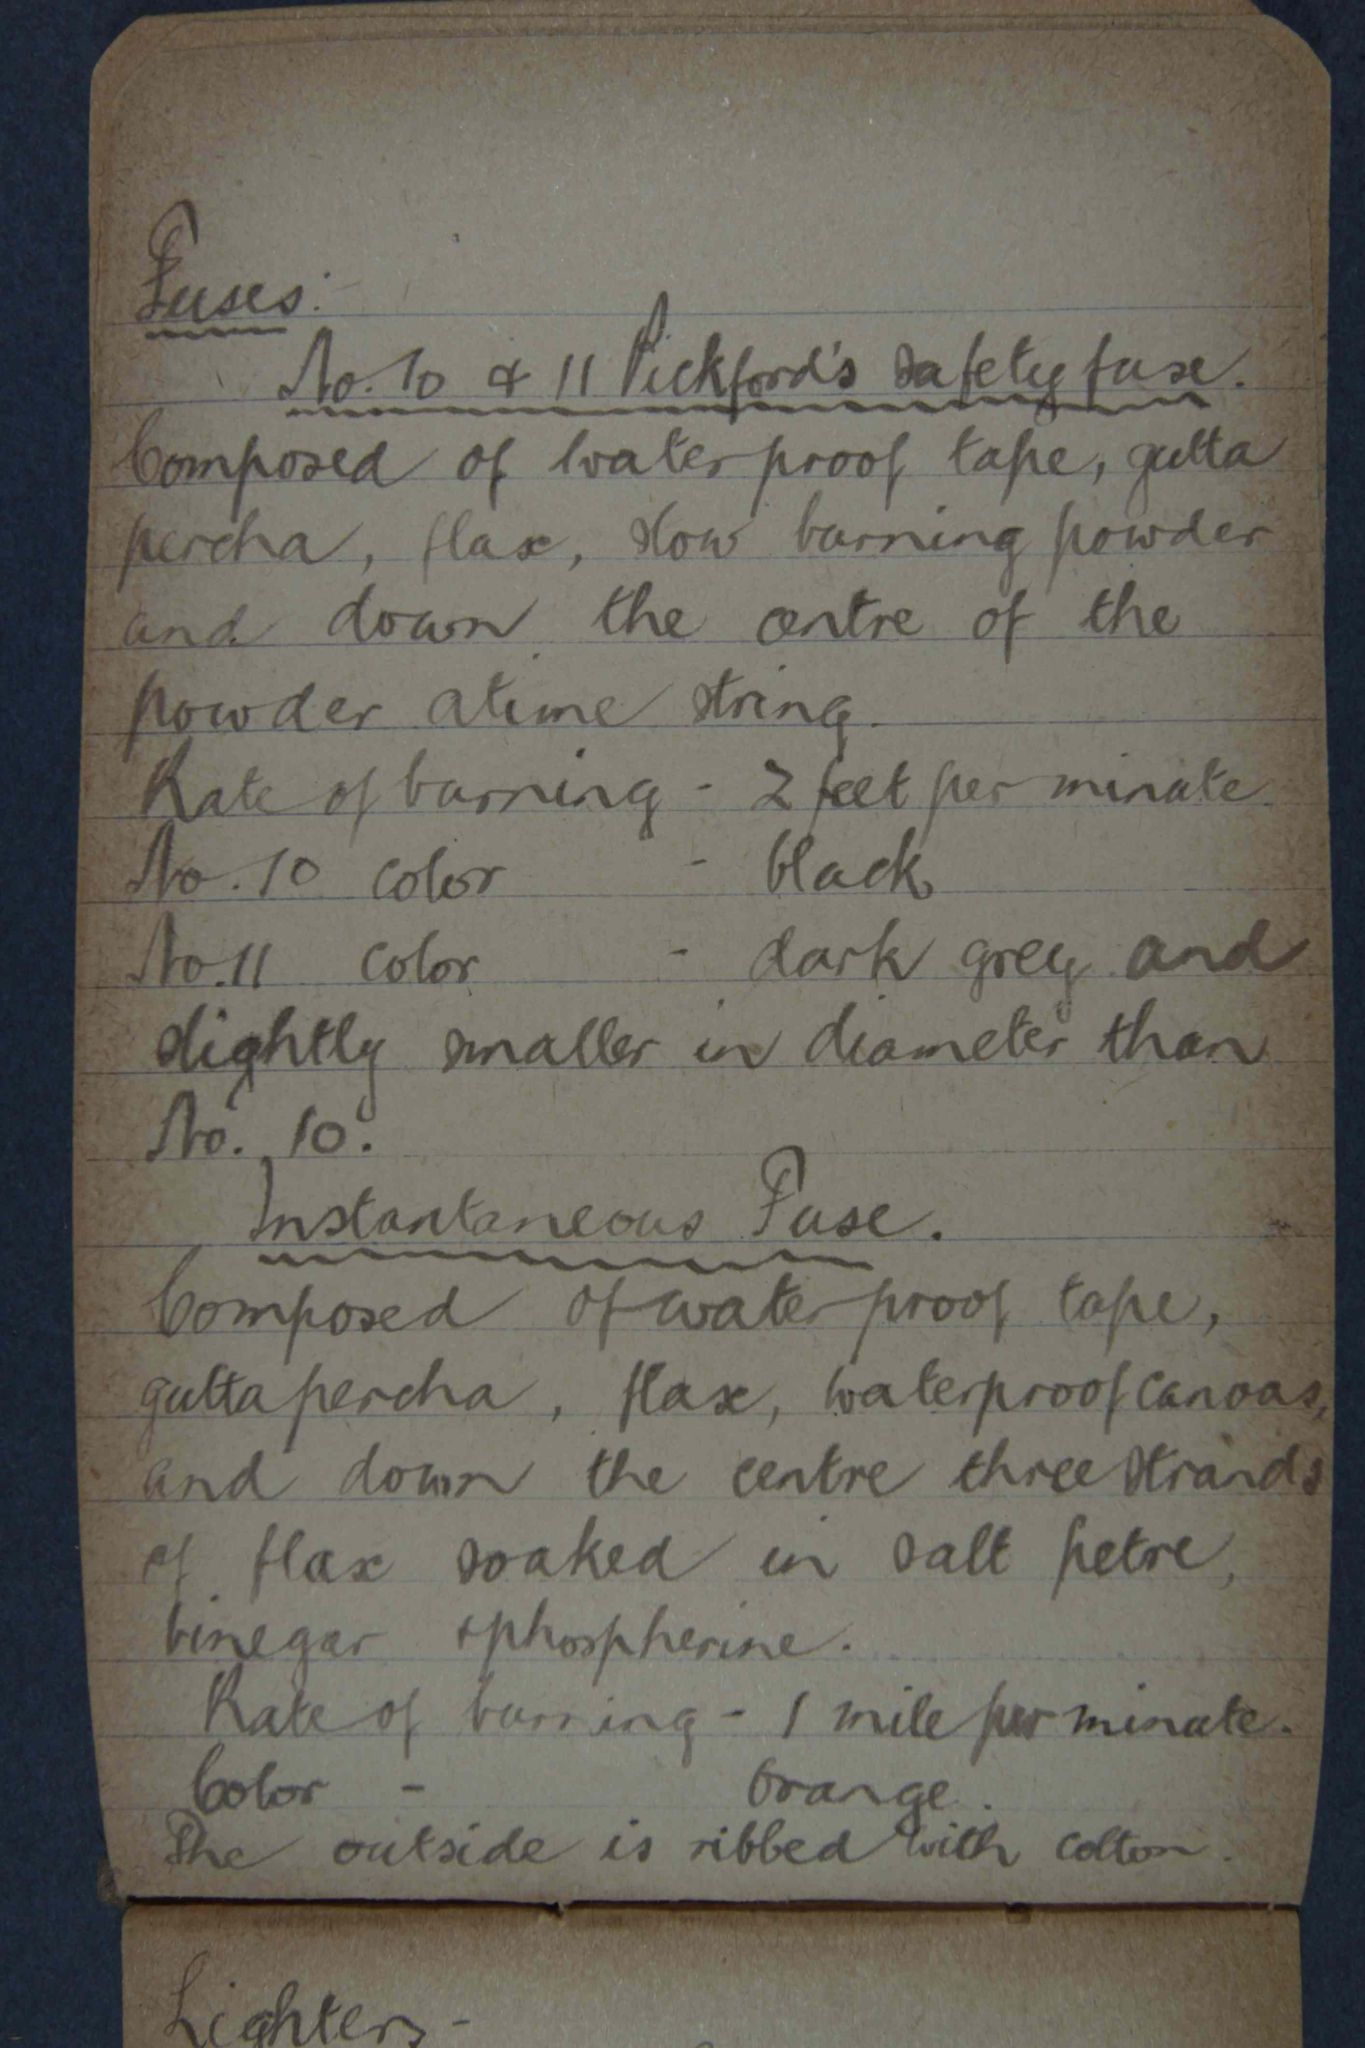 Fuses:-
No. 10 & 11 Pickford's safety fuse.
Composed of water proof tape, gutta
percha, flax, slow burning powder
and down the centre of the
powder a time string.
Rate of burning - 2 feet per minute
No. 10 color - black
No. 11 color - dark grey and
slightly smaller in diameter than
No. 10.
Instantaneous Fuse.
Composed of water proof tape,
gutta percha, flax, waterproof canvas,
and down the centre three strands
of flax soaked in salt petre,
vinegar & phospherine.
Rate of burning - 1 mile per minute.
Color - Orange.
The outside is ribbed with cotton.
Lighters -